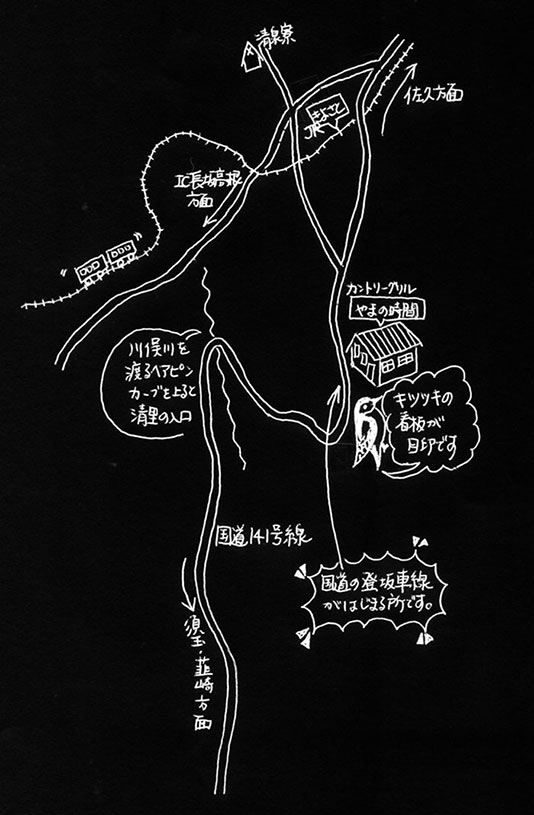 清泉寮
佐久方面
きよさと
JR
IC長坂高根
方面
カントリーグリル
やまの時間
川俣川を
渡るヘアピン
カーブを上ると
清里の入口
キツツキの
看板が
目印です
国道141号線
国道の登坂車線
がはじまる所です。
須玉・韮崎方面